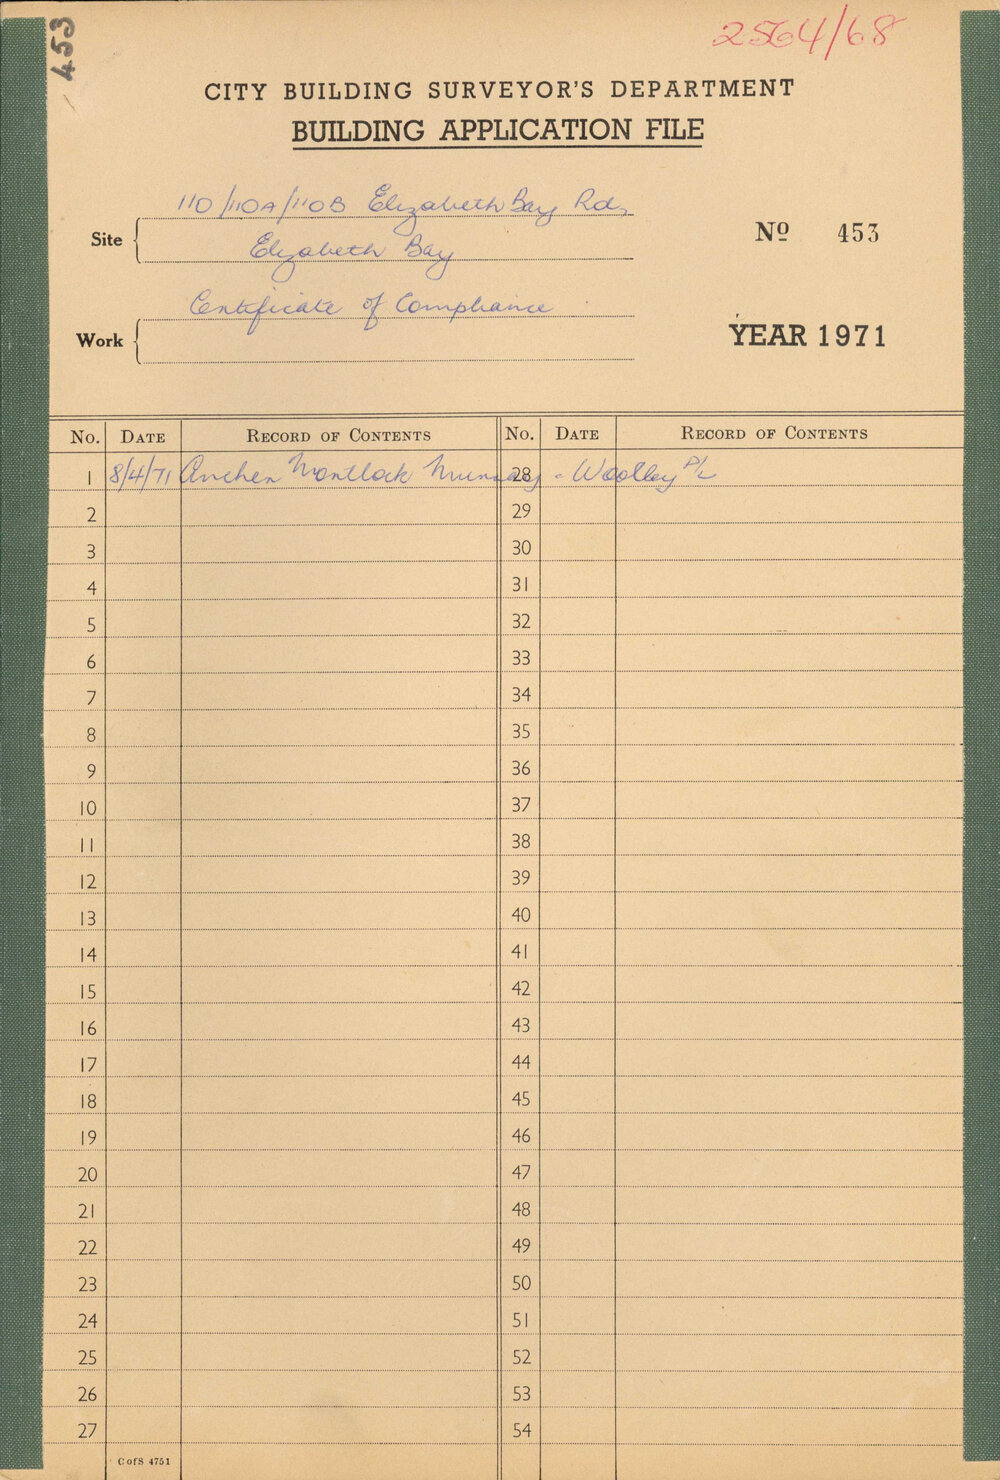 453
2564/68
CITY BUILDING SURVEYOR'S DEPARTMENT
BUILDING APPLICATION FILE
110/110A/110B Elizabeth Bay Rd,
Site
Elizabeth Bay
Nº 453
Certificate of Compliance
Work
YEAR 1971
No. DATE RECORD OF CONTENTS No. DATE RECORD OF CONTENTS
1 8/4/71 Ancher Mortlock Murray - Woolley P/L 28
2 29
3 30
4 31
5 32
6 33
7 34
8 35
9 36
10 37
11 38
12 39
13 40
14 41
15 42
16 43
17 44
18 45
19 46
20 47
21 48
22 49
23 50
24 51
25 52
26 53
27 54
C of S 4751